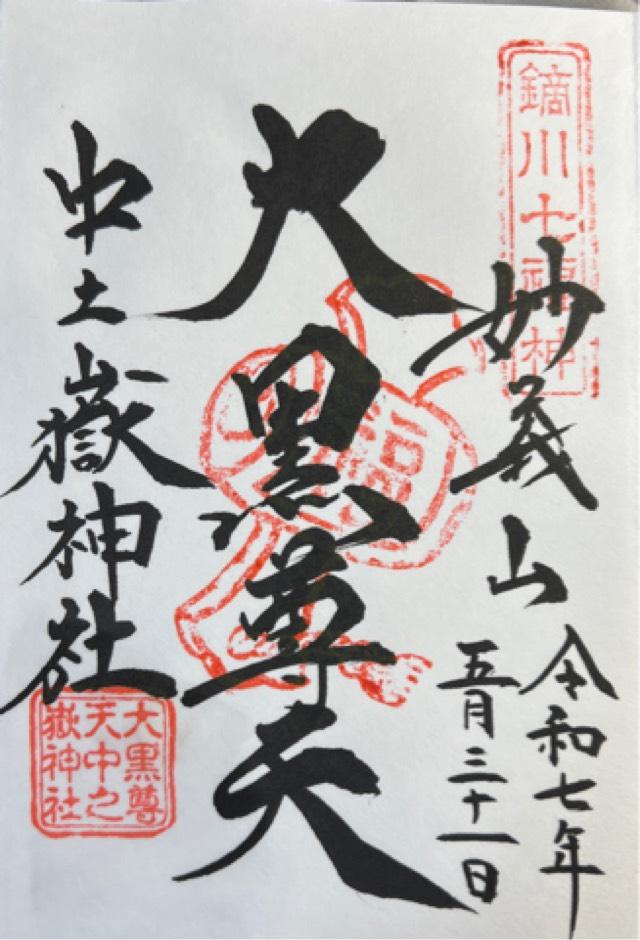 鏑川七福神
妙義山
令和七年
五月三十一日
大黒尊天
福
中之嶽神社
大黒尊
天中之
嶽神社